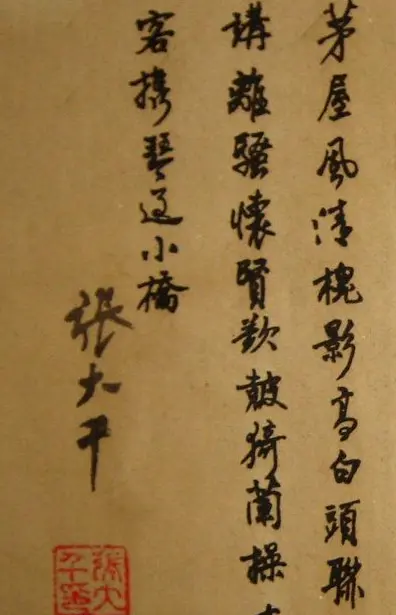 茅屋風清槐影高白頭聯
講離騷懷賢欲皷猗蘭操
客攜琴過小橋
張大千